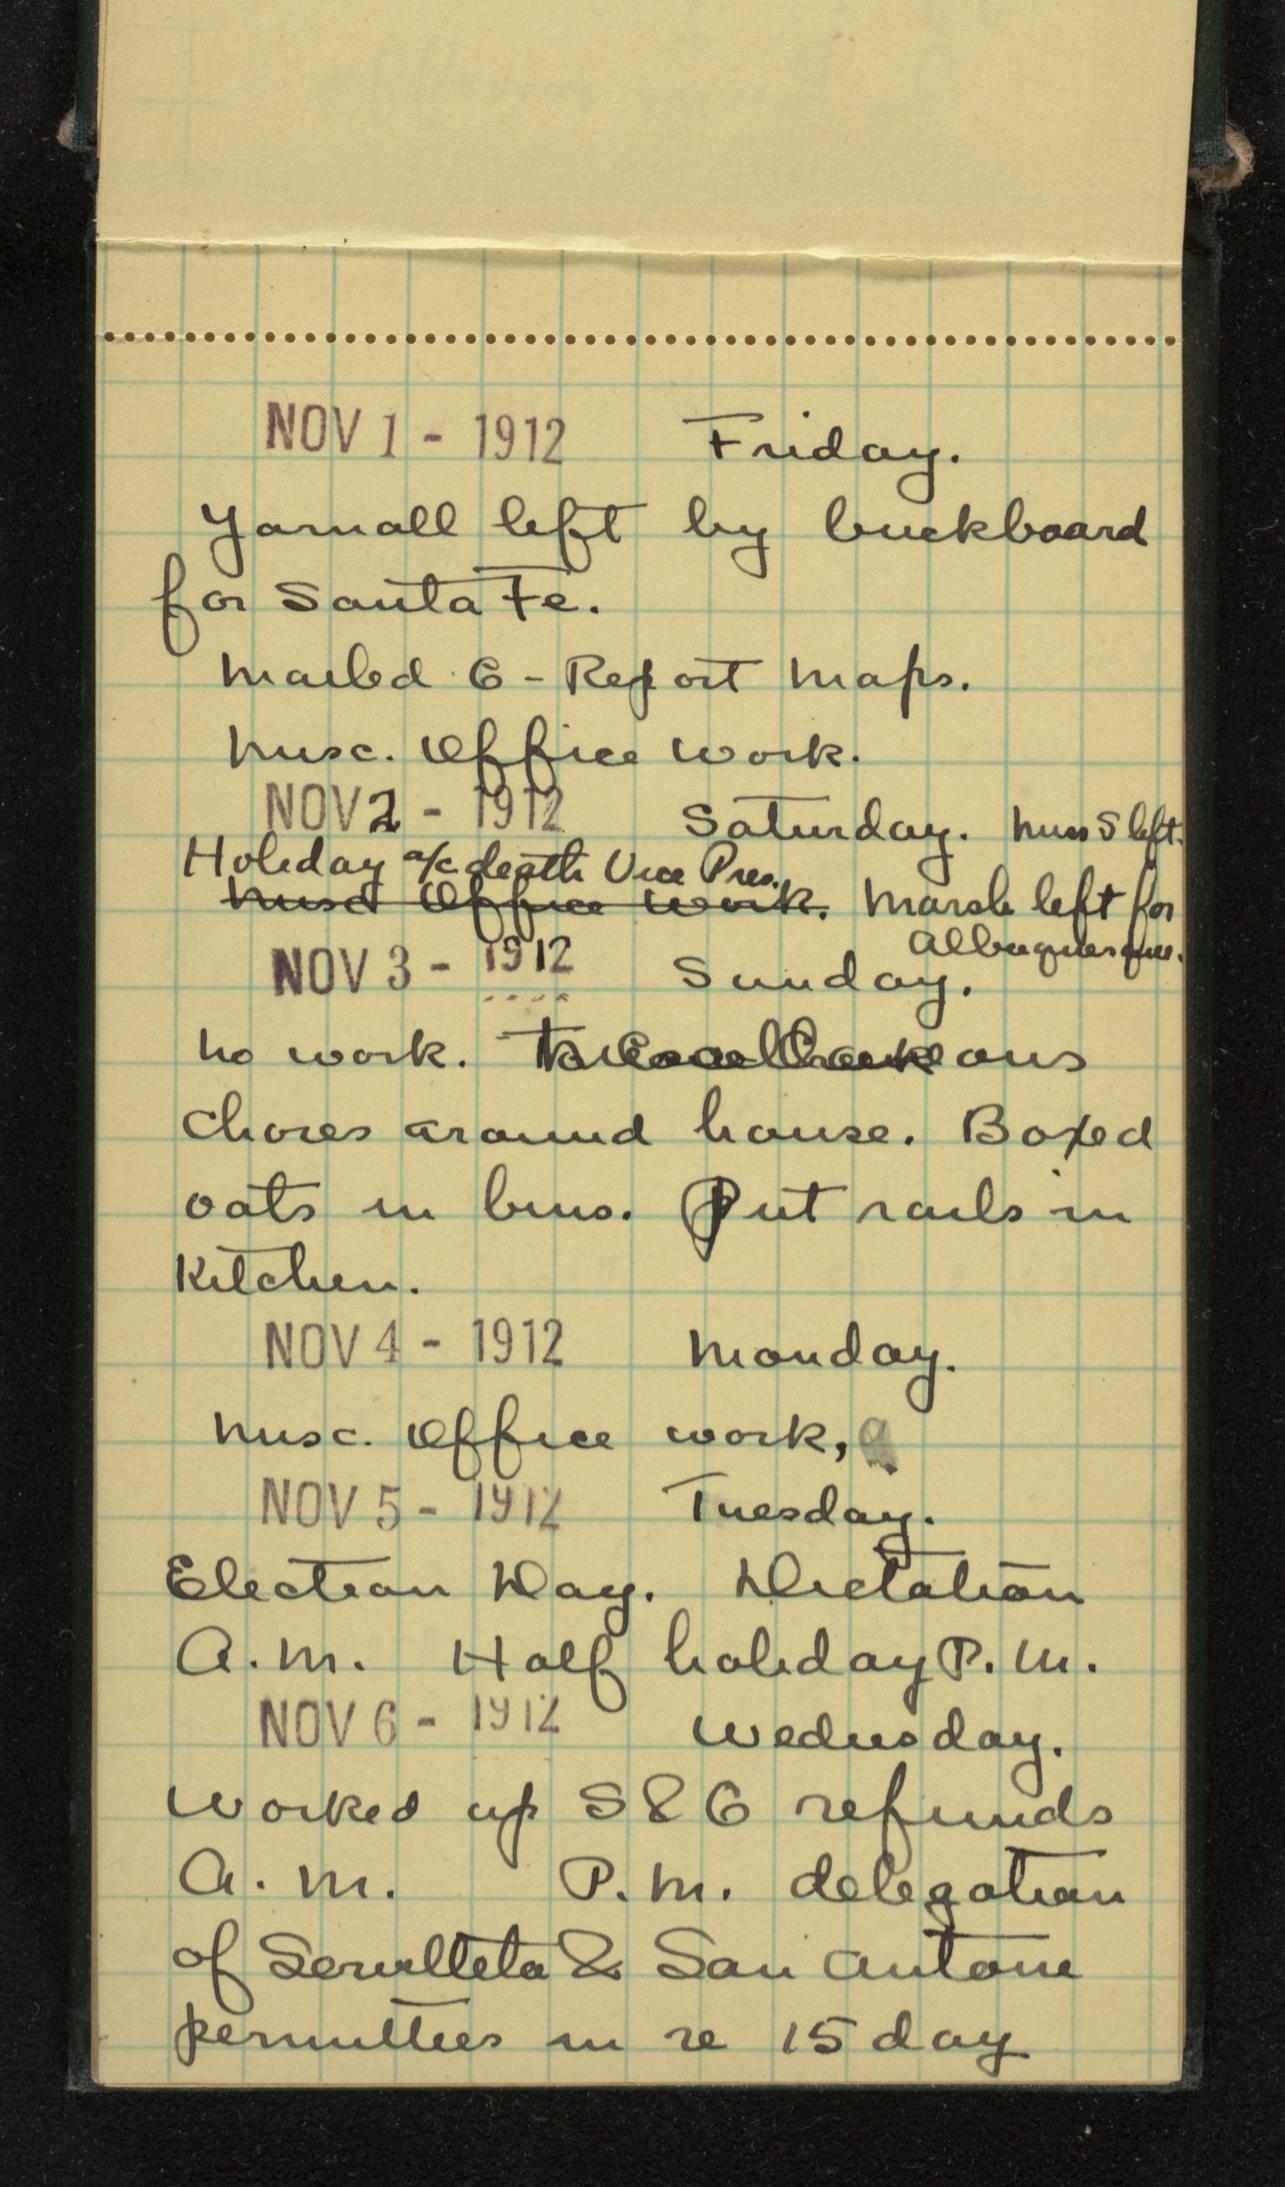 NOV 1 - 1912 Friday.
Yarnall left by buckboard
for Santa Fe.
Mailed G-Report Maps.
Misc. Office work.
NOV 2 - 1912 Saturday. Miss S left.
Holiday a/c death Vice Pres.
Misc Office work. Marsh left for
Albuquerque.
NOV 3 - 1912 Sunday.
No work.
chores around house. Boxed
oats in bins. Put rails in
Kitchen.
NOV 4 - 1912 Monday.
Misc. Office work,
NOV 5 - 1912 Tuesday.
Election Day. Dictation
A.M. Half holiday P.M.
NOV 6 - 1912 Wednesday.
Worked up S&G refunds
A.M. P.M. delegation
of Servilleta & San Antone
permittees in re 15 day